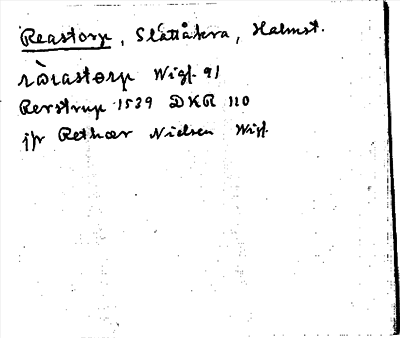 Reastorp, Slättåkra, Halmst.
ràıastorp Wigf. 91
Rerstrup 1539 DKR 110
jfr Rethær Nielsen Wigf.